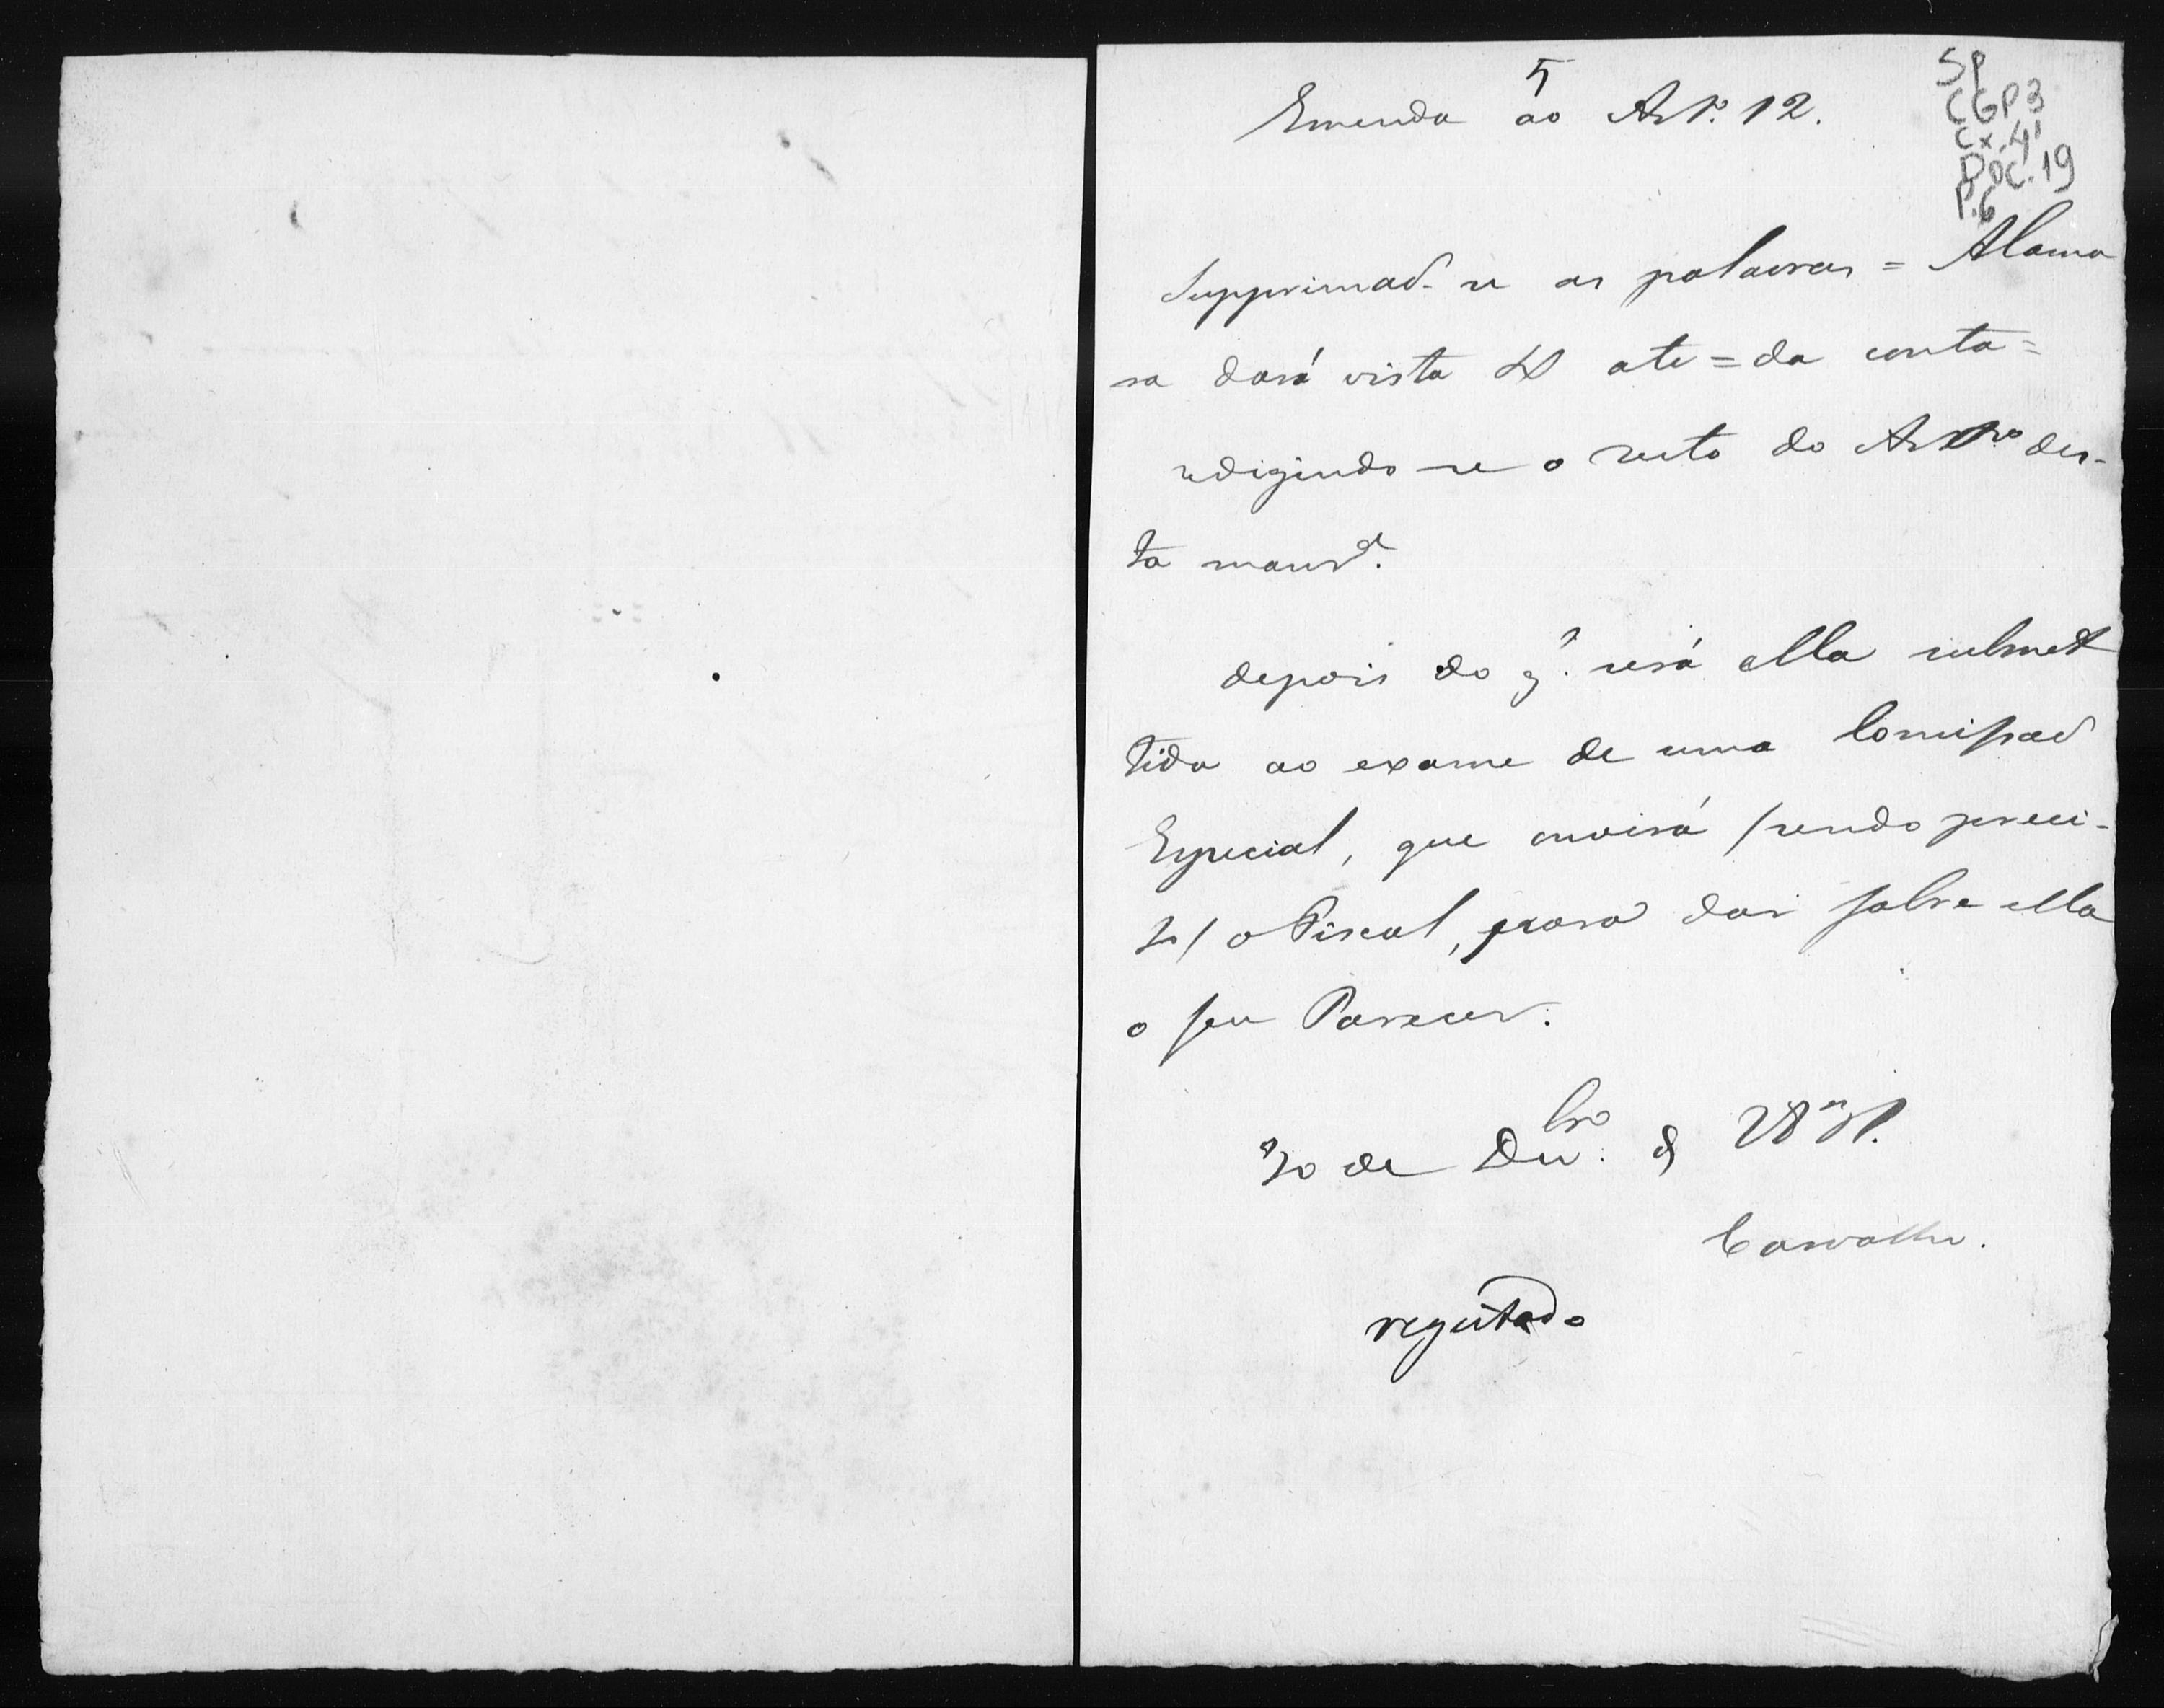 5
Emenda ao Art.º 12.
SP
CGP3
Cx.41
DOC.19
P.6
Supprimaõ-se as palavras = A Cama
ra dará vista & ate = da conta =
redigindo-se o resto do Art.º des-
ta manr.ª
depois do q.' será ella submet
tida ao exame de uma Comissaõ
Especial, que ouvirá /sendo preci-
zo/ o Fiscal, para dar sobre ella
o seu Parecer.
de Dezbro. de
Carvalho.
regeitado